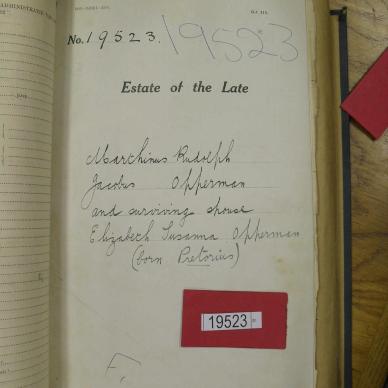 No. 19523.
19523
Estate of the Late
Marthinus Rudolph
Jacobus Opperman
and surviving spouse
Elizabeth Susanna Opperman
(born Pretorius)
19523